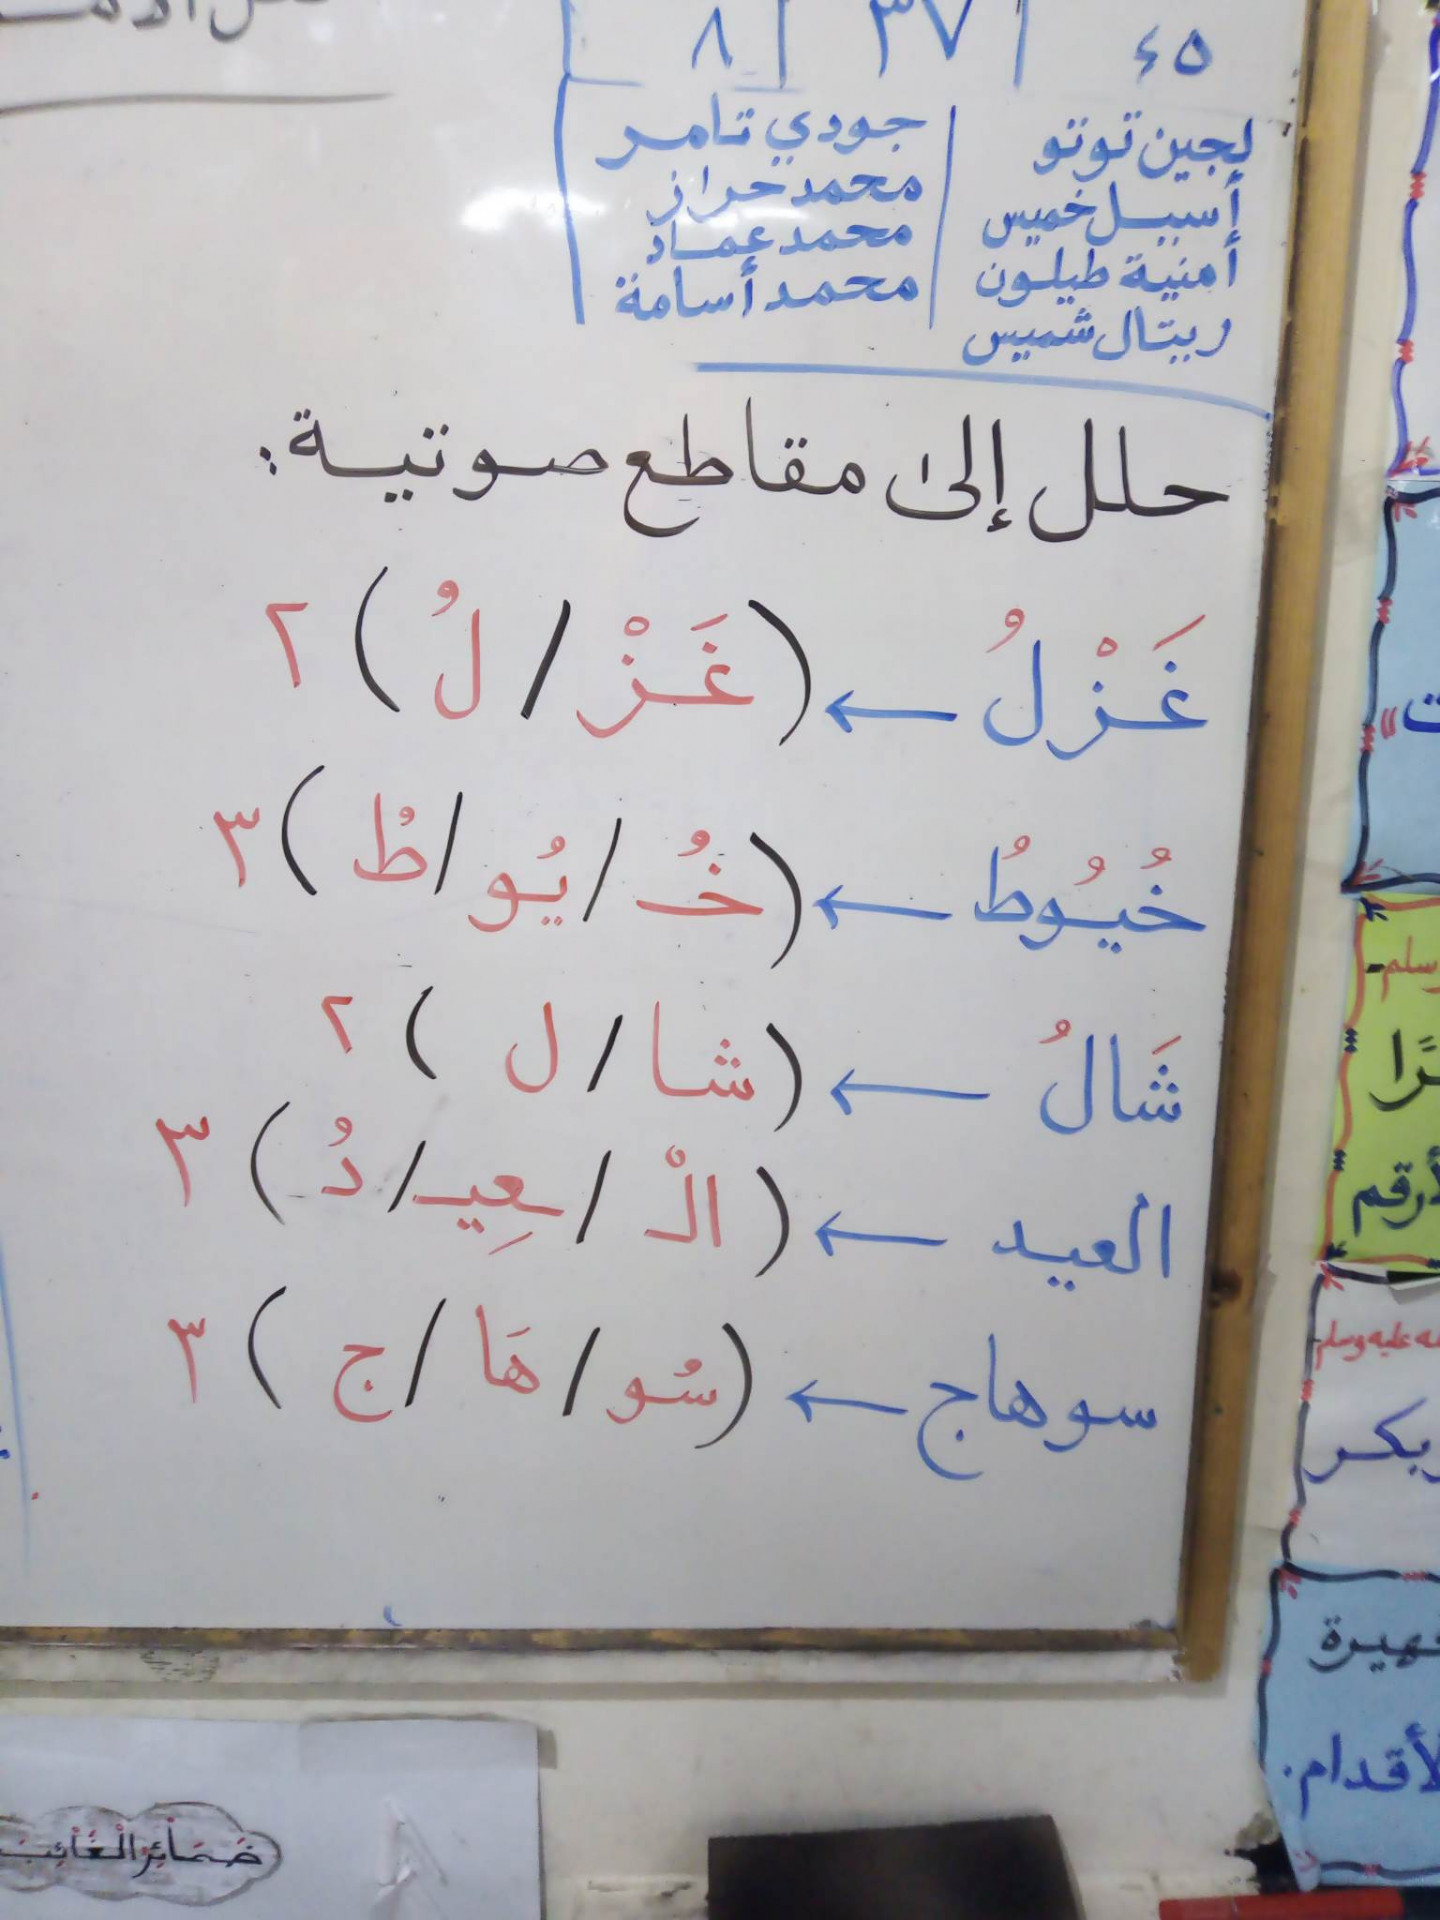 ٤٥ | ٣٧ | ٨
لجين توتو | جودي تامر
أسيل خميس | محمد حراز
أمنية طيلون | محمد عماد
ريتال شميس | محمد أسامة
حلل إلى مقاطع صوتية:
غَزْلُ ← (غَزْ / لُ) ٢
خُيُوطُ ← (خُ / يُو / طُ) ٣
شَالُ ← (شا / ل) ٢
العيد ← (الْ / عِيد / دُ) ٣
سوهاج ← (سُو / هَا / ج) ٣
ت =
وسلم
رًا
لأرقم
له عليه وسلم
بكر
هيرة
لأقدام.
ضَمَائِرُ الْغَائِبِ